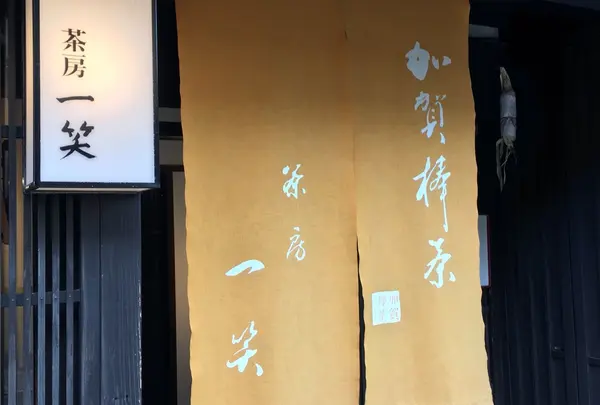 茶房
一笑
加賀棒茶
茶房
一笑